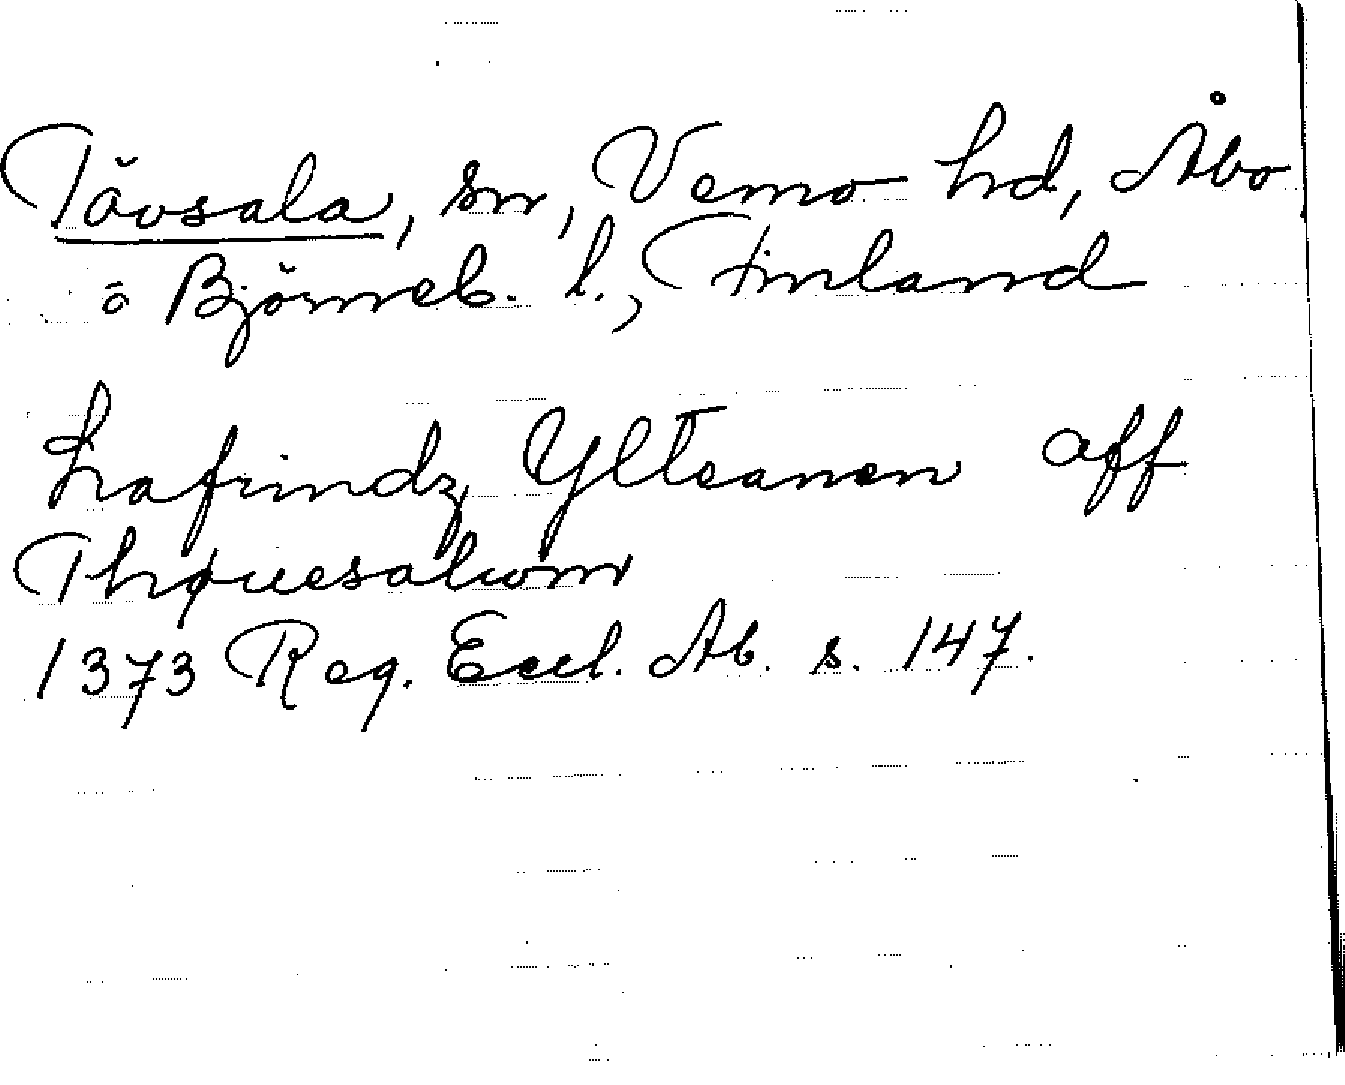 Tövsala, sn, Vemo hd, Åbo
o Björneb. l., Finland
Lafrindz Yltsanen aff
Thøuesalwm
1373 Reg. Eccl. Ab. s. 147.